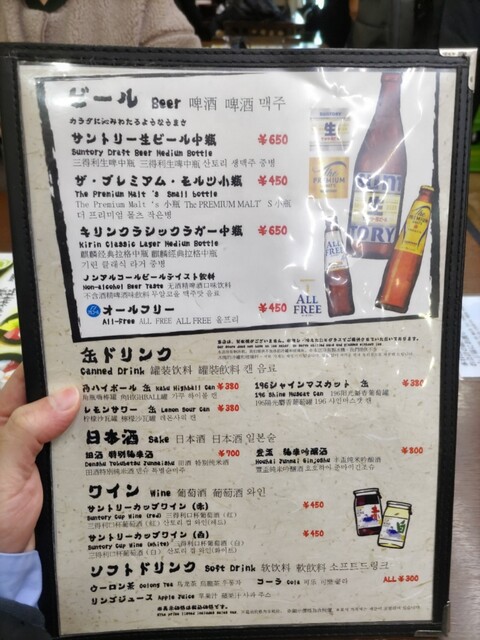 ビール Beer 啤酒 啤酒 맥주
カラダにしみわたるようなうまさ
サントリー生ビール中瓶 ¥650
Suntory Draft Beer Medium Bottle
三得利生啤中瓶 三得利生啤中瓶 산토리 생맥주 중병
ザ・プレミアム・モルツ小瓶 ¥450
The Premium Malt's Small bottle
The Premium Malt's 小瓶 The PREMIUM MALT'S 小瓶
더 프리미엄 몰츠 작은병
キリンクラシックラガー中瓶 ¥650
Kirin Classic Lager Medium Bottle
麒麟经典拉格中瓶 麒麟經典拉格中瓶
기린 클래식 라거 중병
ノンアルコールビールテイスト飲料
Non-alcohol Beer Taste 无酒精啤酒口味饮料
不含酒精啤酒味飲料 무알코올 맥주맛 음료
オールフリー ¥450
All-Free ALL FREE ALL FREE 올프리
SUNTORY
生
The PREMIUM
ALL FREE
缶ドリンク
Canned Drink 罐装饮料 罐裝飲料 캔 음료
角ハイボール 缶 Kaku Highball Can ¥380
角瓶嗨棒罐 角HIGHBALL罐 가쿠 하이볼 캔
レモンサワー 缶 Lemon Sour Can ¥380
柠檬沙瓦罐 檸檬沙瓦 罐 레몬사워 캔
196シャインマスカット 缶 ¥380
196 Shine Muscat Can 196阳光玫瑰葡萄罐
196 샤인머스캣 캔
日本酒 Sake 日本酒 日本酒 일본술
田酒 特別純米酒 ¥700
Denshu Tokubetsu Junmaishu 田酒 特别纯米酒
豊盃 純米吟醸酒 ¥800
Houhai Junmai Ginjoshu 丰盃 纯米吟酿酒
ワイン Wine 葡萄酒 葡萄酒 와인
サントリーカップワイン(赤) ¥450
Suntory Cup Wine (red) 三得利口杯葡萄酒(红)
三得利口杯葡萄酒(紅) 산토리 컵 와인(레드)
サントリーカップワイン(白) ¥450
Suntory Cup Wine (white) 三得利口杯葡萄酒(白)
三得利口杯葡萄酒(白) 산토리 컵 와인(화이트)
ソフトドリンク Soft Drink 软饮料 軟飲料 소프트드링크
ウーロン茶 Oolong Tea 乌龙茶 烏龍茶 우롱차
コーラ Cola 可乐 可樂 콜라
ALL¥300
リンゴジュース Apple Juice 苹果汁 蘋果汁 사과 주스
※表示価格は税込価格です。